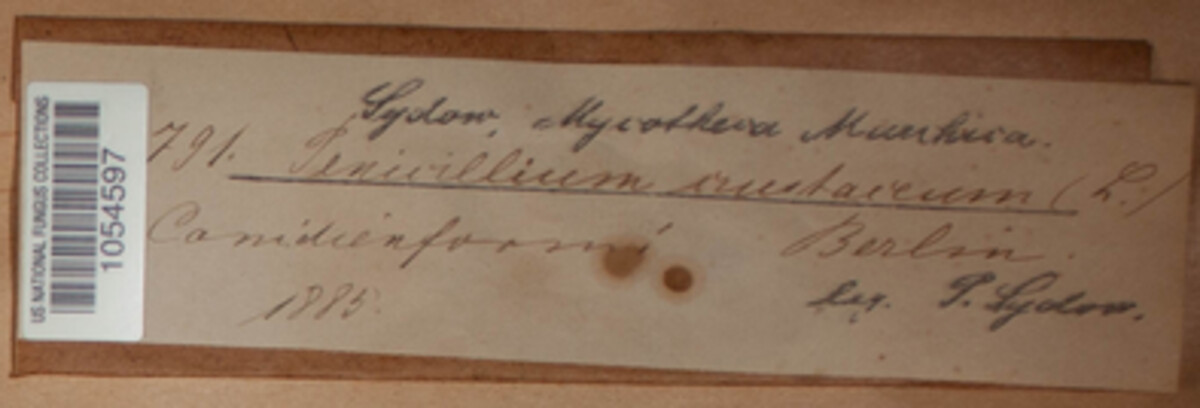 US NATIONAL FUNGUS COLLECTIONS
1054597
Sydow, Mycotheca Marchica.
791. Penicillium crustaceum (L.)
Conidienform Berlin.
1885. leg. P. Sydow.